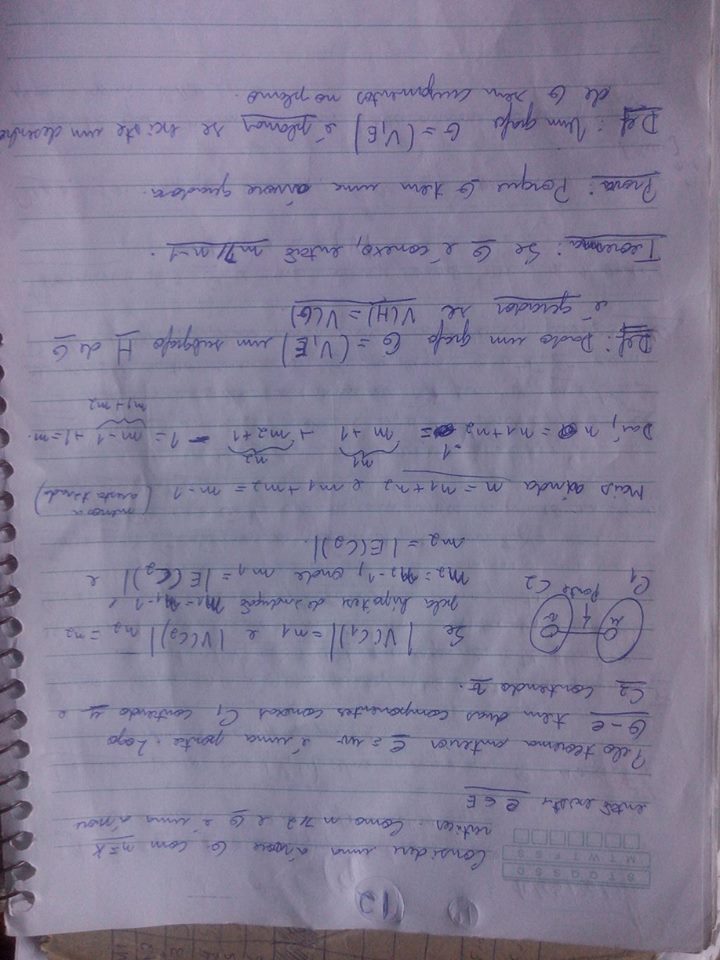 12
S T Q Q S S D
M T W T F S S
Considere uma árvore G com n = k
vértices. Como n ≥ 2 e G é uma árvore
então existe e ∈ E
Pelo teorema anterior e = uv é uma ponte. Logo
G - e tem duas componentes conexas C1 contendo u e
C2 contendo v.
Se |V(C1)| = n1 e |V(C2)| n2 = n2
pela hipótese de indução m1 = n1 - 1 e
m2 = n2 - 1, onde m1 = |E(C2)| e
m2 = |E(C2)|.
u v
ponte
C1 C2
Mais ainda n = n1 + n2 e m1 + m2 = m - 1 (menos a aresta tirada)
Daí, n - 1 = n1 + n2 - 1 = m1 + 1 + m2 + 1 - 1 = m - 1 + 1 = m.
n1 n2 m1 + m2
Def: Dado um grafo G = (V, E) um subgrafo H de G
é gerador se V(H) = V(G)
Teorema: Se G é conexo, então m ≥ n - 1.
Prova: Porque G tem uma árvore geradora.
Def: Um grafo G = (V, E) é planar se existe um desenho
de G sem cruzamentos no plano.